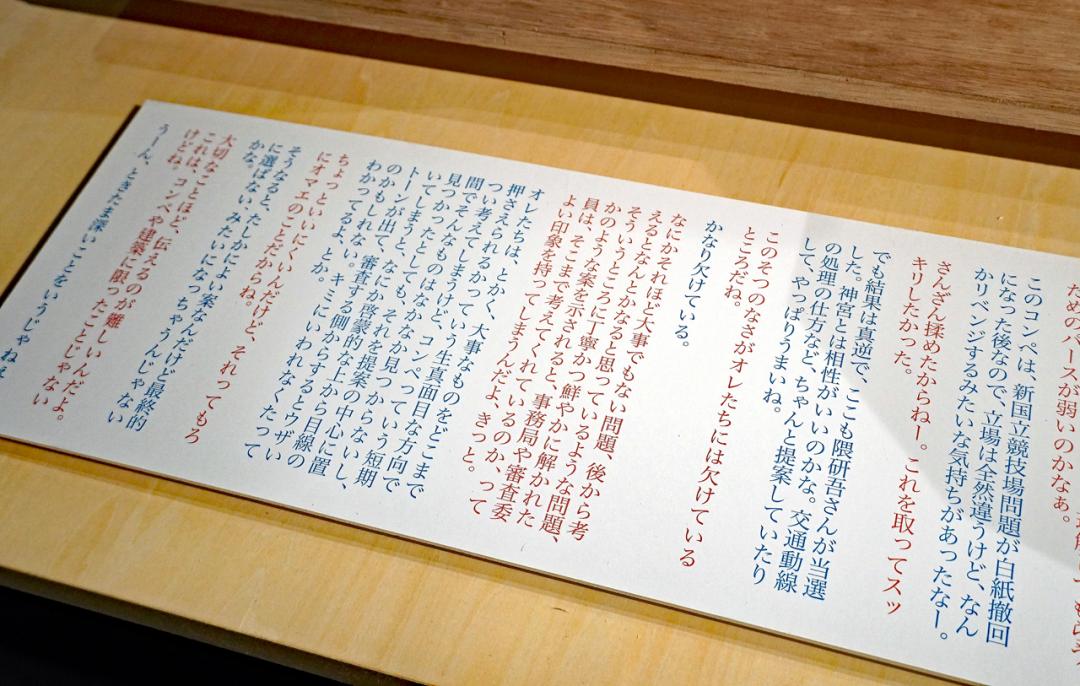 ためのパースが弱いのかなぁ。
このコンペは、新国立競技場問題が白紙撤回
になった後なので、立場は全然違うけど、なん
かリベンジするみたいな気持ちがあったなー。
さんざん揉めたからねー。これを取ってスッ
キリしたかった。
でも結果は真逆で、ここも隈研吾さんが当選
した。神宮とは相性がいいのかな。交通動線
の処理の仕方など、ちゃんと提案していたり
して、やっぱりうまいね。
このそつのなさがオレたちには欠けている
ところだね。
かなり欠けている。
なにかそれほど大事でもない問題、後から考
えるとなんとかなると思っているような問題、
そういうところに丁寧かつ鮮やかに解かれた
かのような案を示されると、事務局や審査委
員は、そこまで考えてくれているのか、って
よい印象を持ってしまうんだよ、きっと。
オレたちは、とかく、大事なものをどこまで
押さえられるかっていう生真面目な方向で
つい考えてしまうけど、コンペっていう短期
間でそんなものはなかなか見つからないし、
見つかったとしても、それを提案の中心に置
いてしまうと、なにか啓蒙的な上から目線の
トーンが出て、審査する側からするとウザい
のかもしれない。キミにいわれなくたって
わかってるよ、とか。
ちょっといいにくいんだけど、それってもろ
にオマエのことだからね。
そうなると、たしかによい案なんだけど最終的
に選ばない、みたいになっちゃうんじゃない
かな。
大切なことほど、伝えるのが難しいんだよ。
これは、コンペや建築に限ったことじゃない
けどね。
うーん、ときたま深いことをいうじゃねえ